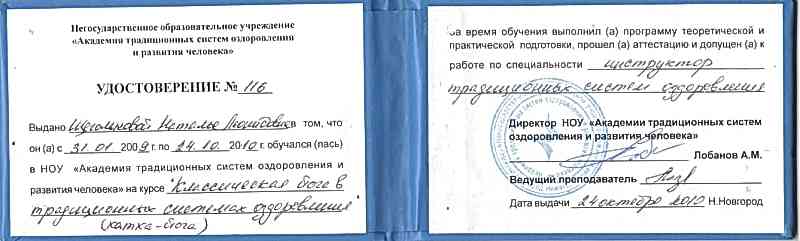 Негосударственное образовательное учреждение
«Академия традиционных систем оздоровления
и развития человека»
УДОСТОВЕРЕНИЕ № 116
Выдано Щегольковой Наталье в том, что
он (а) с 31.01 2009 г. по 24.10 2010 г. обучался (лась)
в НОУ «Академия традиционных систем оздоровления и
развития человека» на курсе "Классическая йога в
традиционных системах оздоровления"
(хатха-йога)
За время обучения выполнил (а) программу теоретической и
практической подготовки, прошел (а) аттестацию и допущен (а) к
работе по специальности инструктор
традиционных систем оздоровления
Директор НОУ «Академии традиционных систем
оздоровления и развития человека»
Лобанов А.М.
Ведущий преподаватель
Дата выдачи 24 октября 2010 Н.Новгород